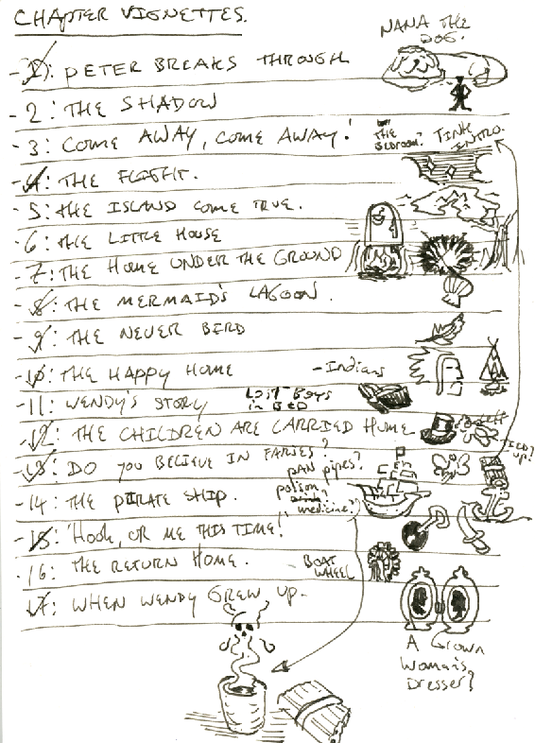 CHAPTER VIGNETTES.
NANA THE DOG.
-1: PETER BREAKS THROUGH
-2: THE SHADOW
-3: COME AWAY, COME AWAY! THE BEDROOM? TINK INTRO.
-4: THE FLIGHT.
-5: THE ISLAND COME TRUE.
-6: THE LITTLE HOUSE
-7: THE HOME UNDER THE GROUND
-8: THE MERMAID'S LAGOON.
-9: THE NEVER BIRD
-10: THE HAPPY HOME -Indians
-11: WENDY'S STORY LOST BOYS in BED
-12: THE CHILDREN ARE CARRIED HOME
-13: DO YOU BELIEVE IN FARIES?
PAN PIPES?
Poison
medicine?
UP?
-14: THE PIRATE SHIP.
-15: 'HOOK, OR ME THIS TIME!'
-16: THE RETURN HOME. BOAT WHEEL
-17: WHEN WENDY GREW UP.
A Grown
Woman's
Dresser?